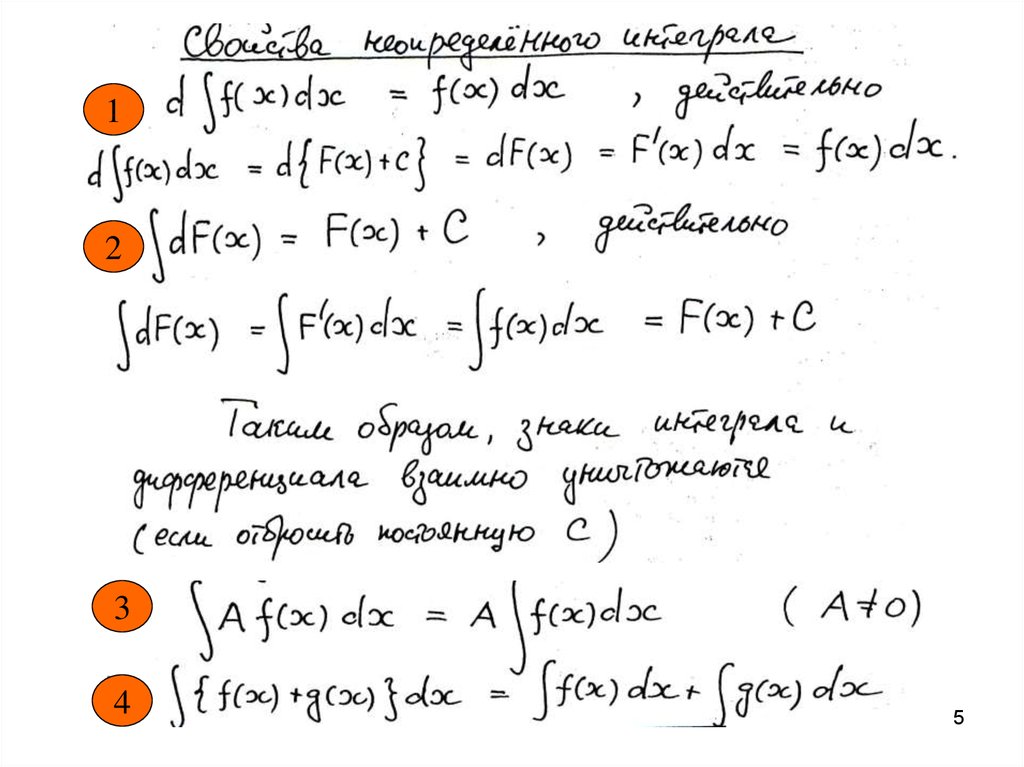 Свойства неопределённого интеграла
1 d ∫f(x)dx = f(x) dx , действительно
d∫f(x)dx = d{F(x)+c} = dF(x) = F'(x) dx = f(x)dx.
2 ∫dF(x) = F(x) + C , действительно
∫dF(x) = ∫F'(x)dx = ∫f(x)dx = F(x) + C
Таким образом, знаки интеграла и
дифференциала взаимно уничтожаются
(если отбросить постоянную C)
3 ∫A f(x) dx = A ∫f(x)dx ( A≠0)
4 ∫{f(x)+g(x)}dx = ∫f(x) dx + ∫g(x) dx
5